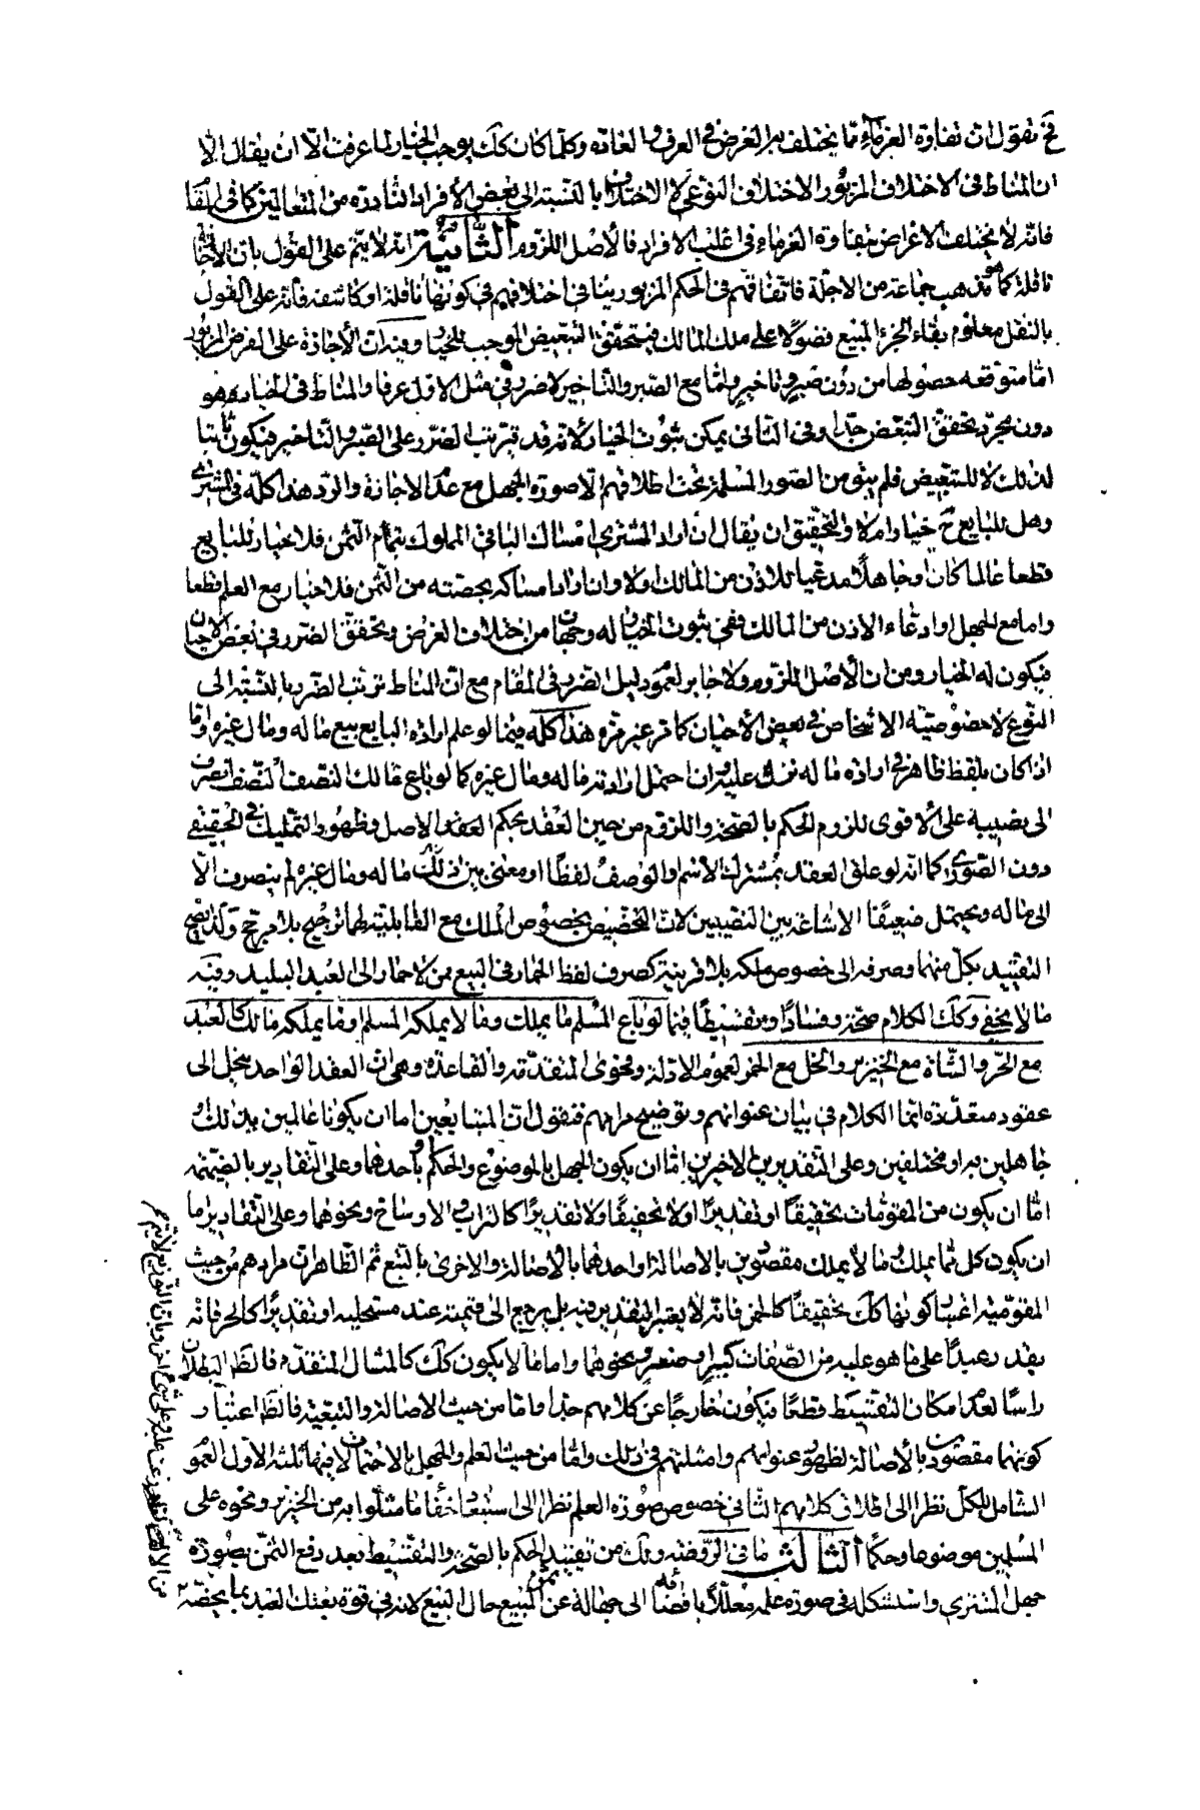 فح نقول ان تفاوة الغرماء مما يختلف به الغرض في العرف والعادة وكلما كان كك يوجب الخيار لما عرفت الا ان يقال الا
ان المناط في الاختلاف المزبور الاختلاف النوعي لا الاختلاف بالنسبة الى بعض الأفراد النادرة من المتعاملين كما في المقا
فانه لا يختلف الاغراض بتفاوة الغرماء في اغلب الافراد فالأصل اللزوم الثانية انه لا يتم على القول بان الاجا
ناقلة كما هو مذهب جماعة من الاجلة فاتفاقهم في الحكم المزبور ينافي اختلافهم في كونها ناقلة او كاشفه فانه على القول
بالنقل معلوم بقاء الجزء المبيع فضولا على ملك المالك فيتحقق التبعيض الموجب للخيار وفيه ان الأجازة على الفرض المزبور
اما متوقعه حصولها من دون صبر وتاخير واما مع الصبر والتاخير لا ضرر في مثل الاول عرفا والمناط في الخيار هو
دون مجرد تحقق التبعض جدا وفي الثاني يمكن ثبوت الخيار لانه قد يترتب الضرر على الصبر والتاخير فيكون ثابتا
لذلك لا للتبعيض فلم يبق من الصور المسلمة تحت اطلاقهم الا صورة الجهل مع عدم الاجازة والرد هذا كله في المشتري
وهل للبايع ح خيار ام لا والتحقيق ان يقال ان اراد المشتري امساك الباقي المملوك بتمام الثمن فلا خيار للبايع
قطعا عالما كان او جاهلا مدعيا للاذن من المالك اولا وان اراد امساكه بحصته من الثمن فلا خيار مع العلم قطعا
واما مع الجهل او ادعاء الاذن من المالك ففي ثبوت الخيار له وجهان من اختلاف الغرض وتحقق الضرر في بعض الاحيان
فيكون له الخيار ومن ان الأصل اللزوم ولا جابر لعموم دليل الضرر في المقام مع ان المناط ترتب الضرر بالنسبة الى
النوع لا خصوصية الاشخاص في بعض الأحيان كما مر غير مرة هذا كله فيما لو علم ارادة البايع بيع ماله ومال غيره واما
اذا كان بلفظ ظاهر في ارادة ماله نزل عليه وان احتمل ارادته ماله ومال غيره كما لو باع مالك النصف النصف انصرف
الى نصيبه على الاقوى للزوم الحكم بالصحة واللزوم من حين العقد بحكم العقد الاصل وظهور التمليك في الحقيقي
دون الصوري كما انه لو علق العقد بمشترك الأسم والوصف لفظا او معنى بين ذلك ماله ومال غيره لم ينصرف الا
الى ماله ويحتمل ضعيفا الاشاعة بين النصيبين لان التخصيص بخصوص الملك مع القابلية لهما ترجيح بلا مرجح ولذا يصح
التقييد بكل منهما وصرفه الى خصوص ملكه بلا قرينة كصرف لفظ الحمار في البيع ممن لا حمار الى العبد البليد وفيه
ما لا يخفى وكك الكلام صحة وفسادا وتقسيطا فيما لو باع المسلم ما يملك وما لا يملكه المسلم او ما يملكه مالك كالعبد
مع الحر والشاة مع الخنزير والخل مع الخمر لعموم الادلة وفحوى المتقدمة والقاعدة وهي ان العقد الواحد ينحل الى
عقود متعددة انما الكلام في بيان عنوانهم وتوضيح مرامهم فنقول ان المتبايعين اما ان يكونا عالمين بذلك او
جاهلين به او مختلفين وعلى التقديرين الاخيرين اما ان يكون الجهل بالموضوع والحكم او بأحدهما وعلى التقادير بالضميمة
اما ان يكون من المقومات تحقيقا او تقديرا او لا تحقيقا ولا تقديرا كالتراب والاوساخ ونحوهما وعلى التقادير اما
ان يكون كل مما يملك وما لا يملك مقصودين بالاصالة او احدهما بالأصالة والاخرى بالتبع ثم الظاهر ان مرادهم من حيث
المقومية اعتبار كونها كك تحقيقا كالخمر فانه لا يعتبر التقدير فيه بل يرجع الى قيمته عند مستحليه او تقديرا كالحر فانه
يقدر عبدا على ما هو عليه من الصفات كبير او صغير ونحوهما واما ما لا يكون كك كالمثال المتقدم فالظ البطلان
راسا لعدم امكان التقسيط قطعا فيكون خارجا عن كلامهم جدا واما من حيث الاصالة والتبعية فالظ اعتبار
كونهما مقصودين بالأصالة لظهور عنوانهم وامثلتهم في ذلك واما من حيث العلم والجهل بالاحتمالات فيها ثلثة الاول العموم
الشامل للكل نظرا الى اطلاق كلامهم الثاني خصوص صورة العلم نظرا الى استبعاد خفاء ما مثلوا به من الخنزير ونحوه على
المسلمين موضوعا وحكما الثالث ما في الروضة وك من تقييد الحكم بالصحة والتقسيط بعد دفع الثمن بصورة
جهل المشتري واستشكله في صورة علمه معللا بافضائه الى جهالة ثمن المبيع حال البيع لانه في قوة بعتك العبد بما يخصه